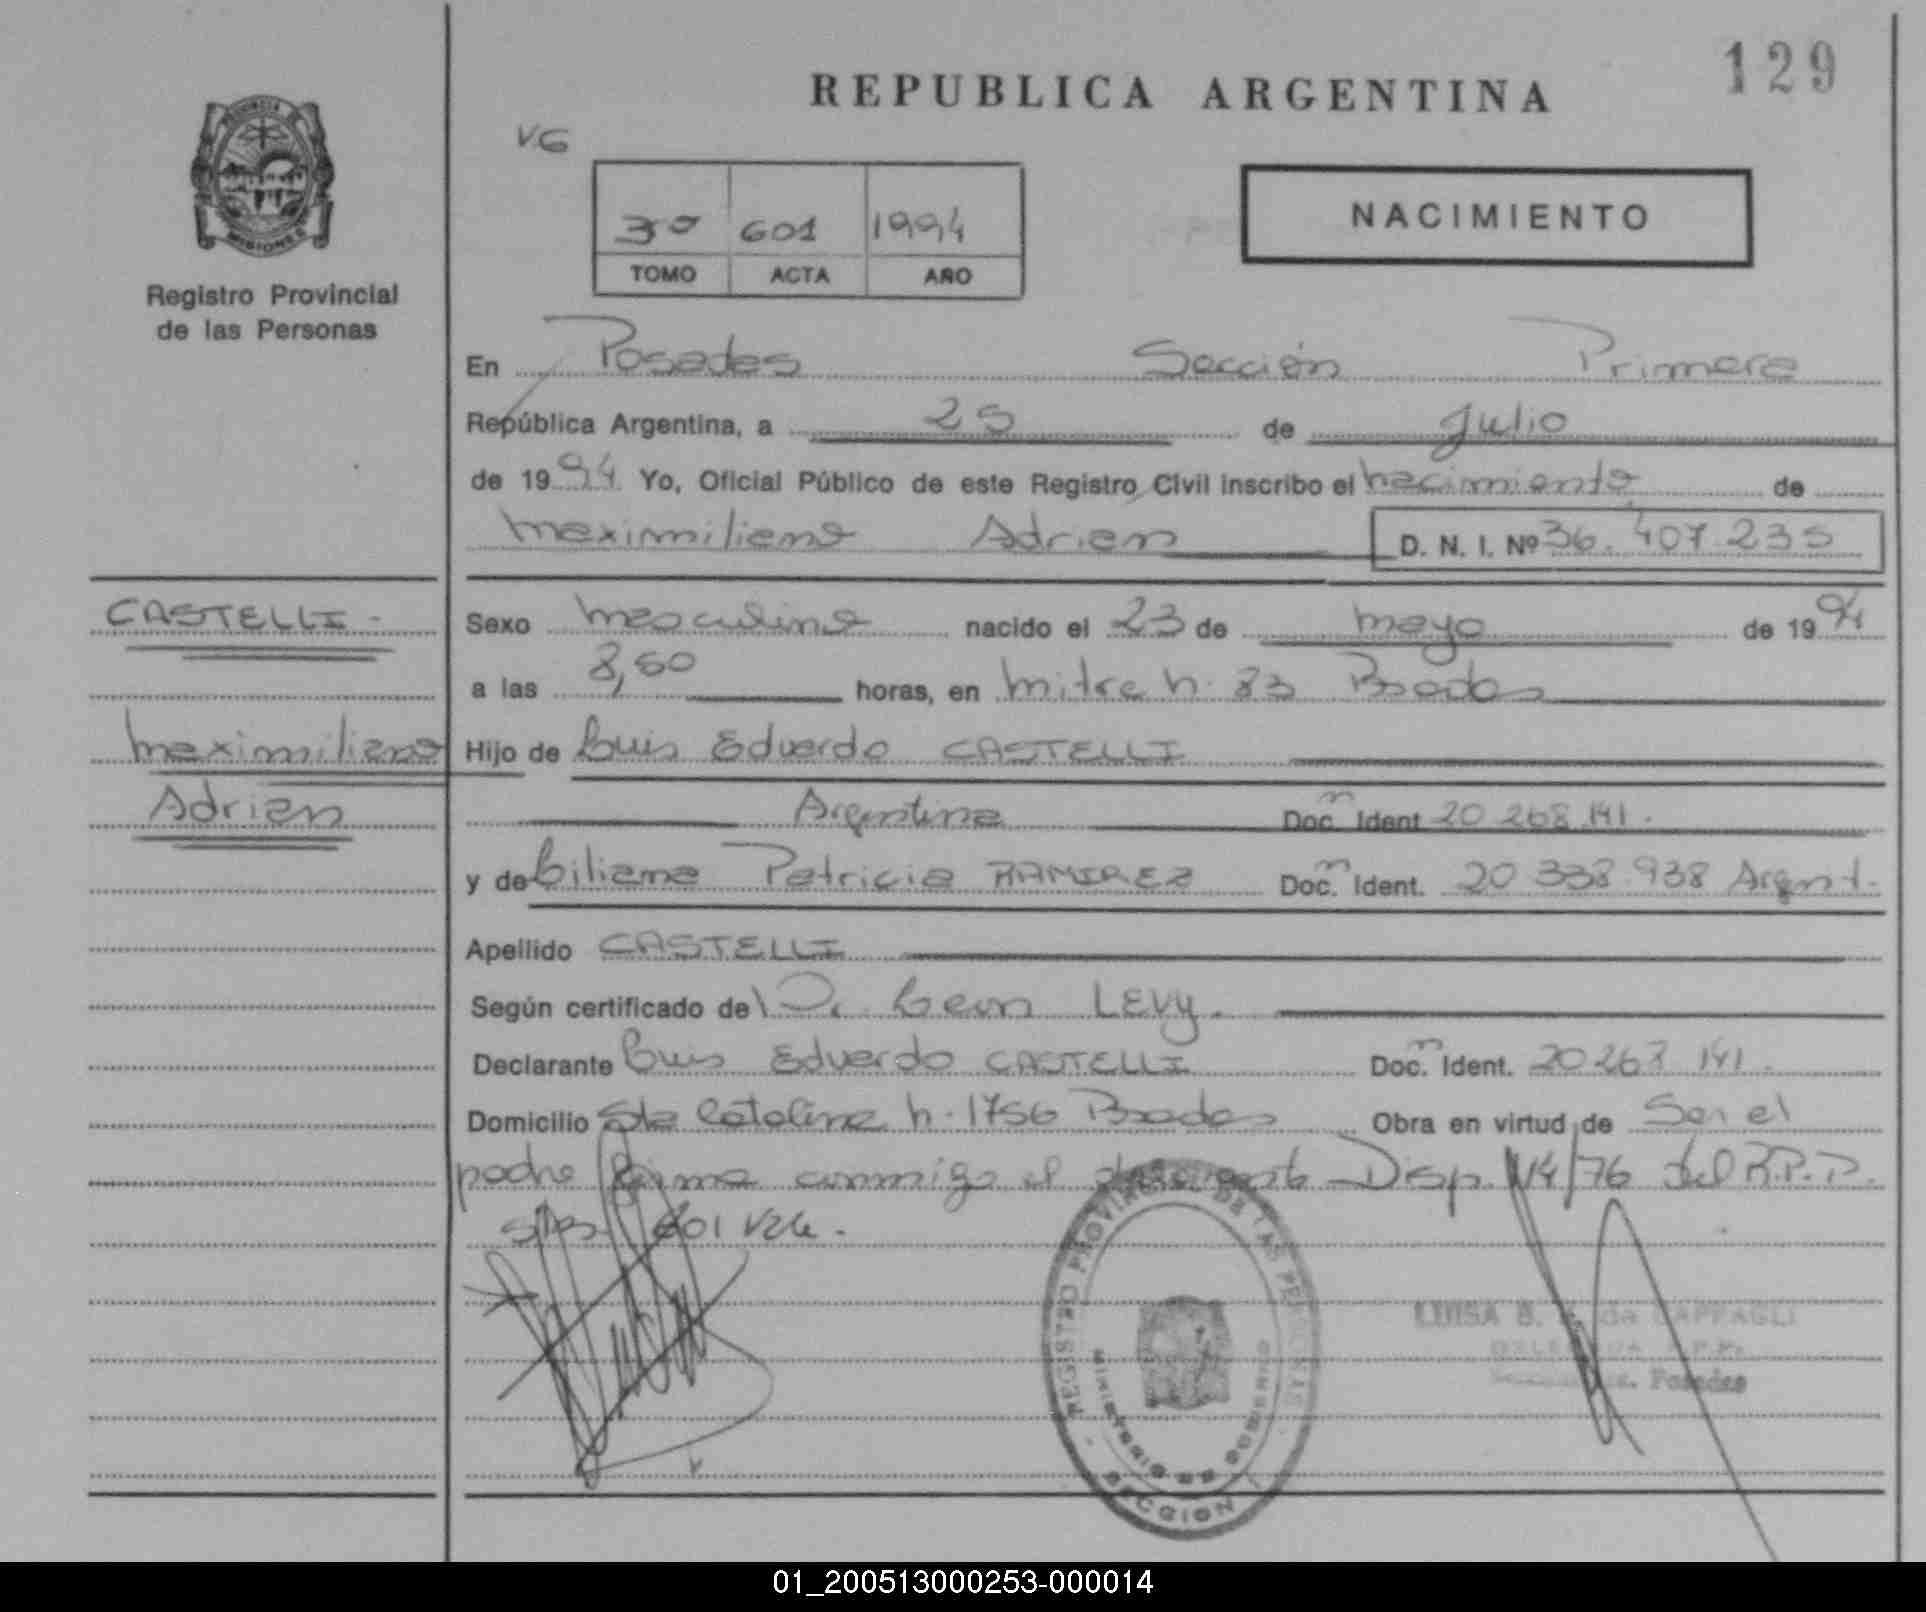 129
REPUBLICA ARGENTINA
VG
3º 601 1994
TOMO ACTA AÑO
NACIMIENTO
PROVINCIA
MISIONES
Registro Provincial
de las Personas
En Posadas Sección Primera
República Argentina, a 25 de Julio
de 1994 Yo, Oficial Público de este Registro Civil inscribo el nacimiento de
Maximiliano Adrian D. N. I. Nº 36.407.235
CASTELLI -
Sexo masculino nacido el 23 de mayo de 1994
a las 8,50 horas, en Mitre n. 83 Posadas
Maximiliano
Hijo de Luis Eduardo CASTELLI
Adrian
Argentina Doc. Ident 20 268.141.
y de Liliana Patricia RAMIREZ Doc. Ident. 20 338.938 Argent.
Apellido CASTELLI
Según certificado de Dr. Leon LEVY.
Declarante Luis Eduardo CASTELLI Doc. Ident. 20 267 141.
Domicilio Sta Catalina n. 1756 Posadas Obra en virtud de Ser el
padre firma conmigo el declarante Disp. 14/76 del R.P.P.
601 Vale.
REGISTRO PROVINCIAL DE LAS PERSONAS
MINISTERIO DE GOBIERNO
SECCION
LUISA B. de
DELEGADA R.P.P.
Posadas
01_200513000253-000014